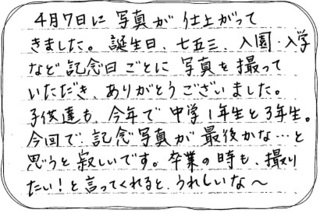 4月7日に写真が仕上がって
きました。誕生日、七五三、入園・入学
など記念日ごとに写真を撮って
いただき、ありがとうございました。
子供達も、今年で中学1年生と3年生。
今回で記念写真が最後かな…と
思うと寂しいです。卒業の時も、撮り
たい!と言ってくれると、うれしいな〜